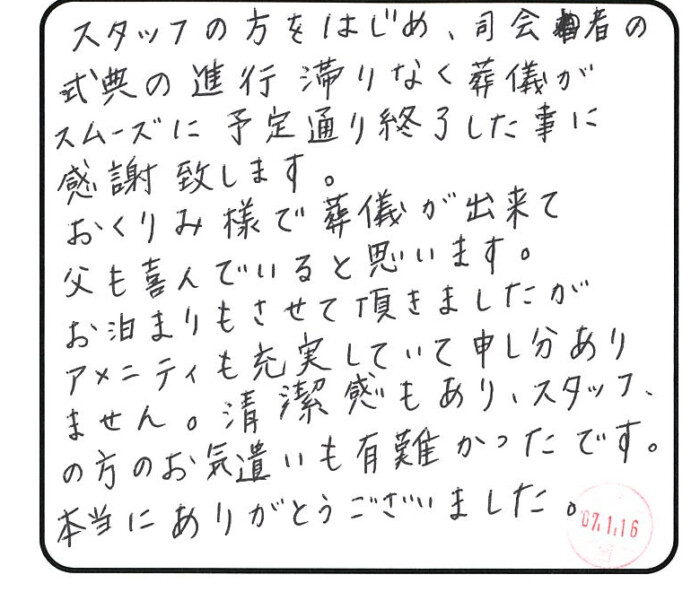 スタッフの方をはじめ、司会者の
式典の進行滞りなく葬儀が
スムーズに予定通り終了した事に
感謝致します。
おくりみ様で葬儀が出来て
父も喜んでいると思います。
お泊まりもさせて頂きましたが
アメニティも充実していて申し分あり
ません。清潔感もあり、スタッフ、
の方のお気遣いも有難かったです。
本当にありがとうございました。
07.1.16